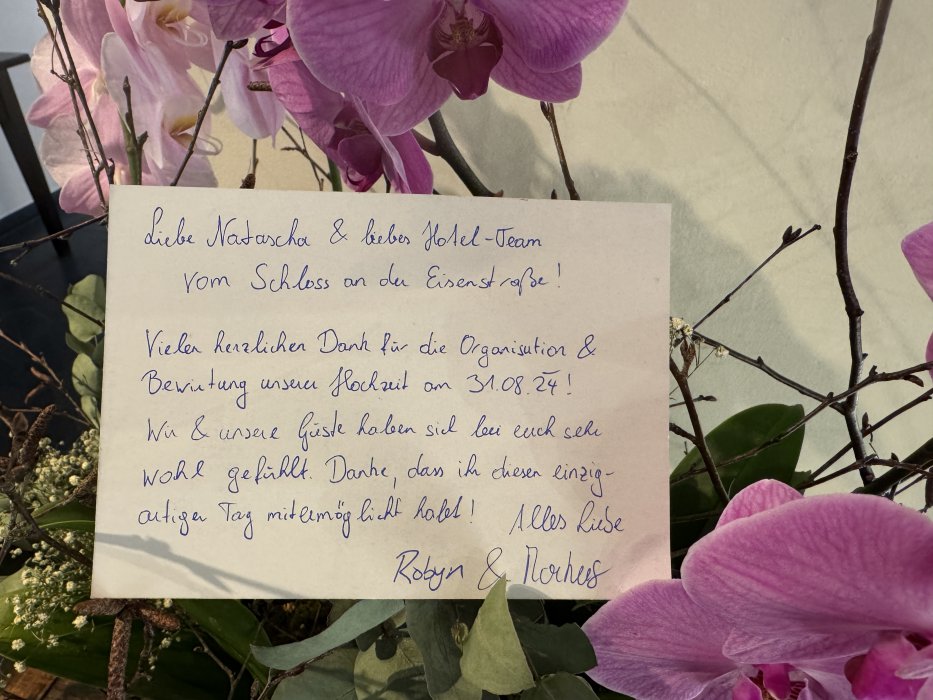 Liebe Natascha & liebes Hotel-Team
vom Schloss an der Eisenstraße!
Vielen herzlichen Dank für die Organisation &
Bewirtung unserer Hochzeit am 31.08.24!
Wir & unsere Gäste haben sich bei euch sehr
wohl gefühlt. Danke, dass ihr diesen einzig-
artigen Tag mitermöglicht habt! Alles Liebe
Robyn & Markus